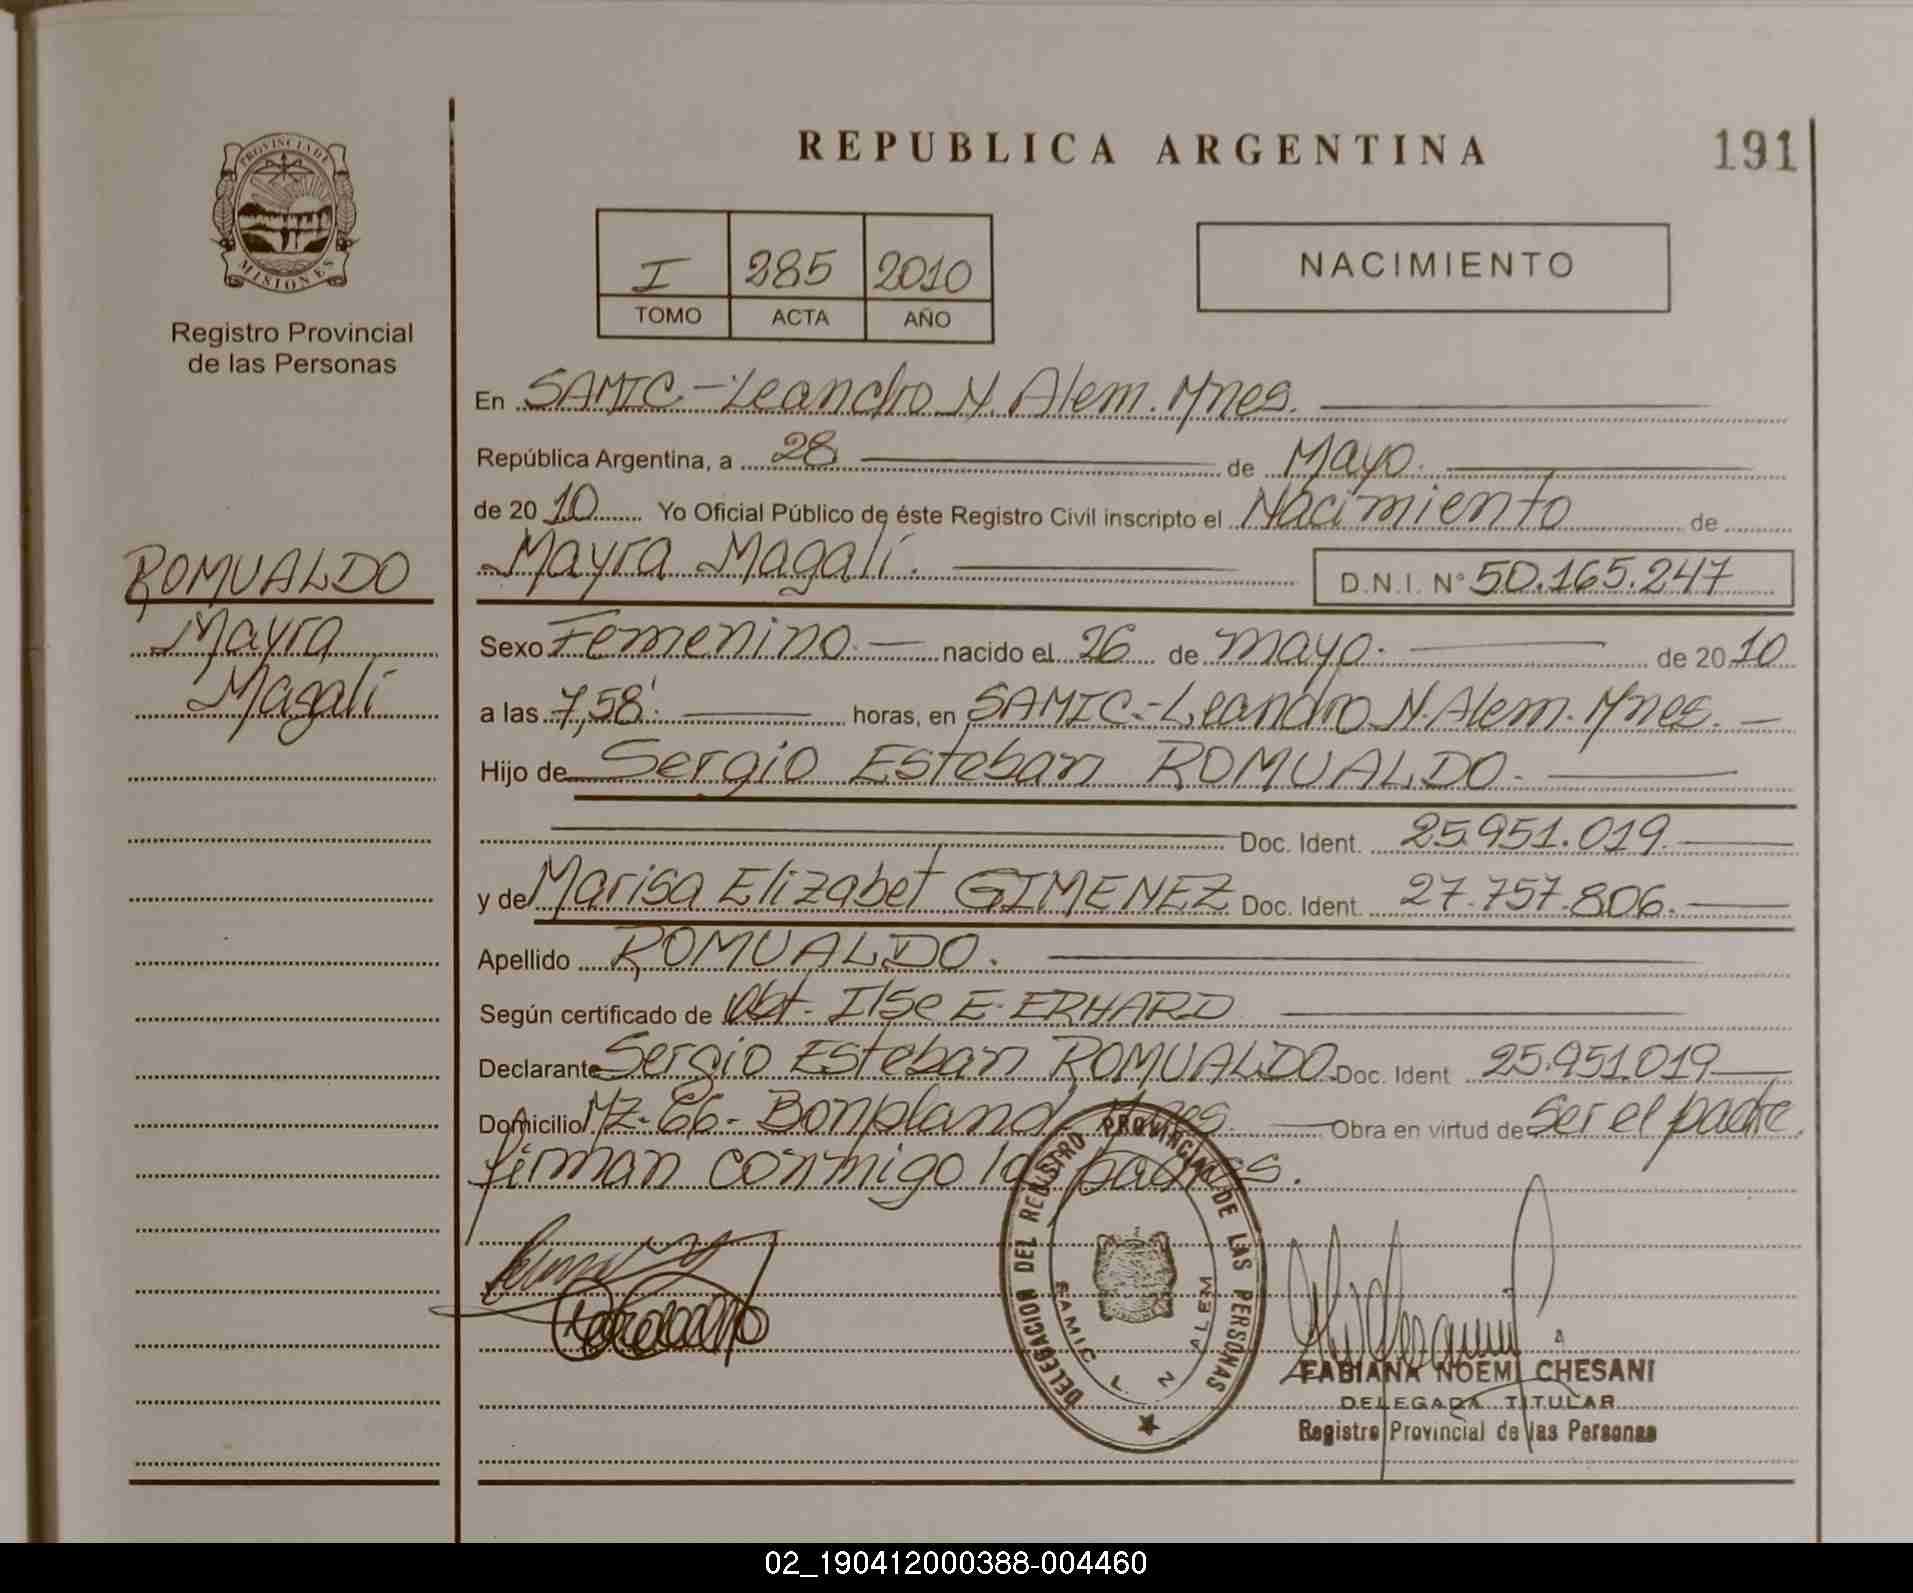 REPUBLICA ARGENTINA
191
PROVINCIA DE
MISIONES
Registro Provincial
de las Personas
I 285 2010
TOMO ACTA AÑO
NACIMIENTO
En SAMIC.-Leandro N. Alem. Mnes.
República Argentina, a 28 de Mayo.
de 2010 Yo Oficial Público de éste Registro Civil inscripto el Nacimiento de
Mayra Magalí. D.N.I. N° 50.165.247
ROMUALDO
Mayra
Magalí
Sexo Femenino.- nacido el 26 de mayo. de 2010
a las 7,58'. horas, en SAMIC.-Leandro N. Alem. Mnes.
Hijo de Sergio Esteban ROMUALDO.
Doc. Ident. 25.951.019.
y de Marisa Elizabet GIMENEZ Doc. Ident. 27.757.806.
Apellido ROMUALDO.
Según certificado de Obt. Ilse E. ERHARD
Declarante Sergio Esteban ROMUALDO. Doc. Ident 25.951.019
Domicilio MZ-66- Bonpland Mnes. Obra en virtud de ser el padre.
firman conmigo los padres.
DELEGACION DEL REGISTRO PROVINCIAL DE LAS PERSONAS
SAMIC L. N. ALEM
FABIANA NOEMI CHESANI
DELEGADA TITULAR
Registro Provincial de las Personas
02_190412000388-004460